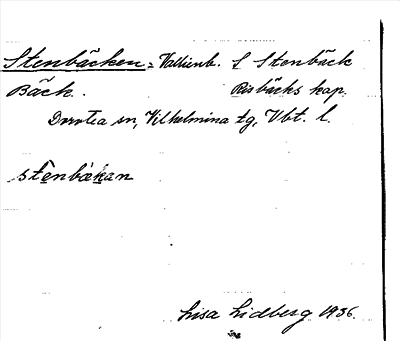 Stenbäcken = Vattenb. L Stenbäck
Bäck. Risbäcks kap.
Dorotea sn, Vilhelmina tg, Vbt. l.
stènbäkan
Lisa Lidberg 1936.